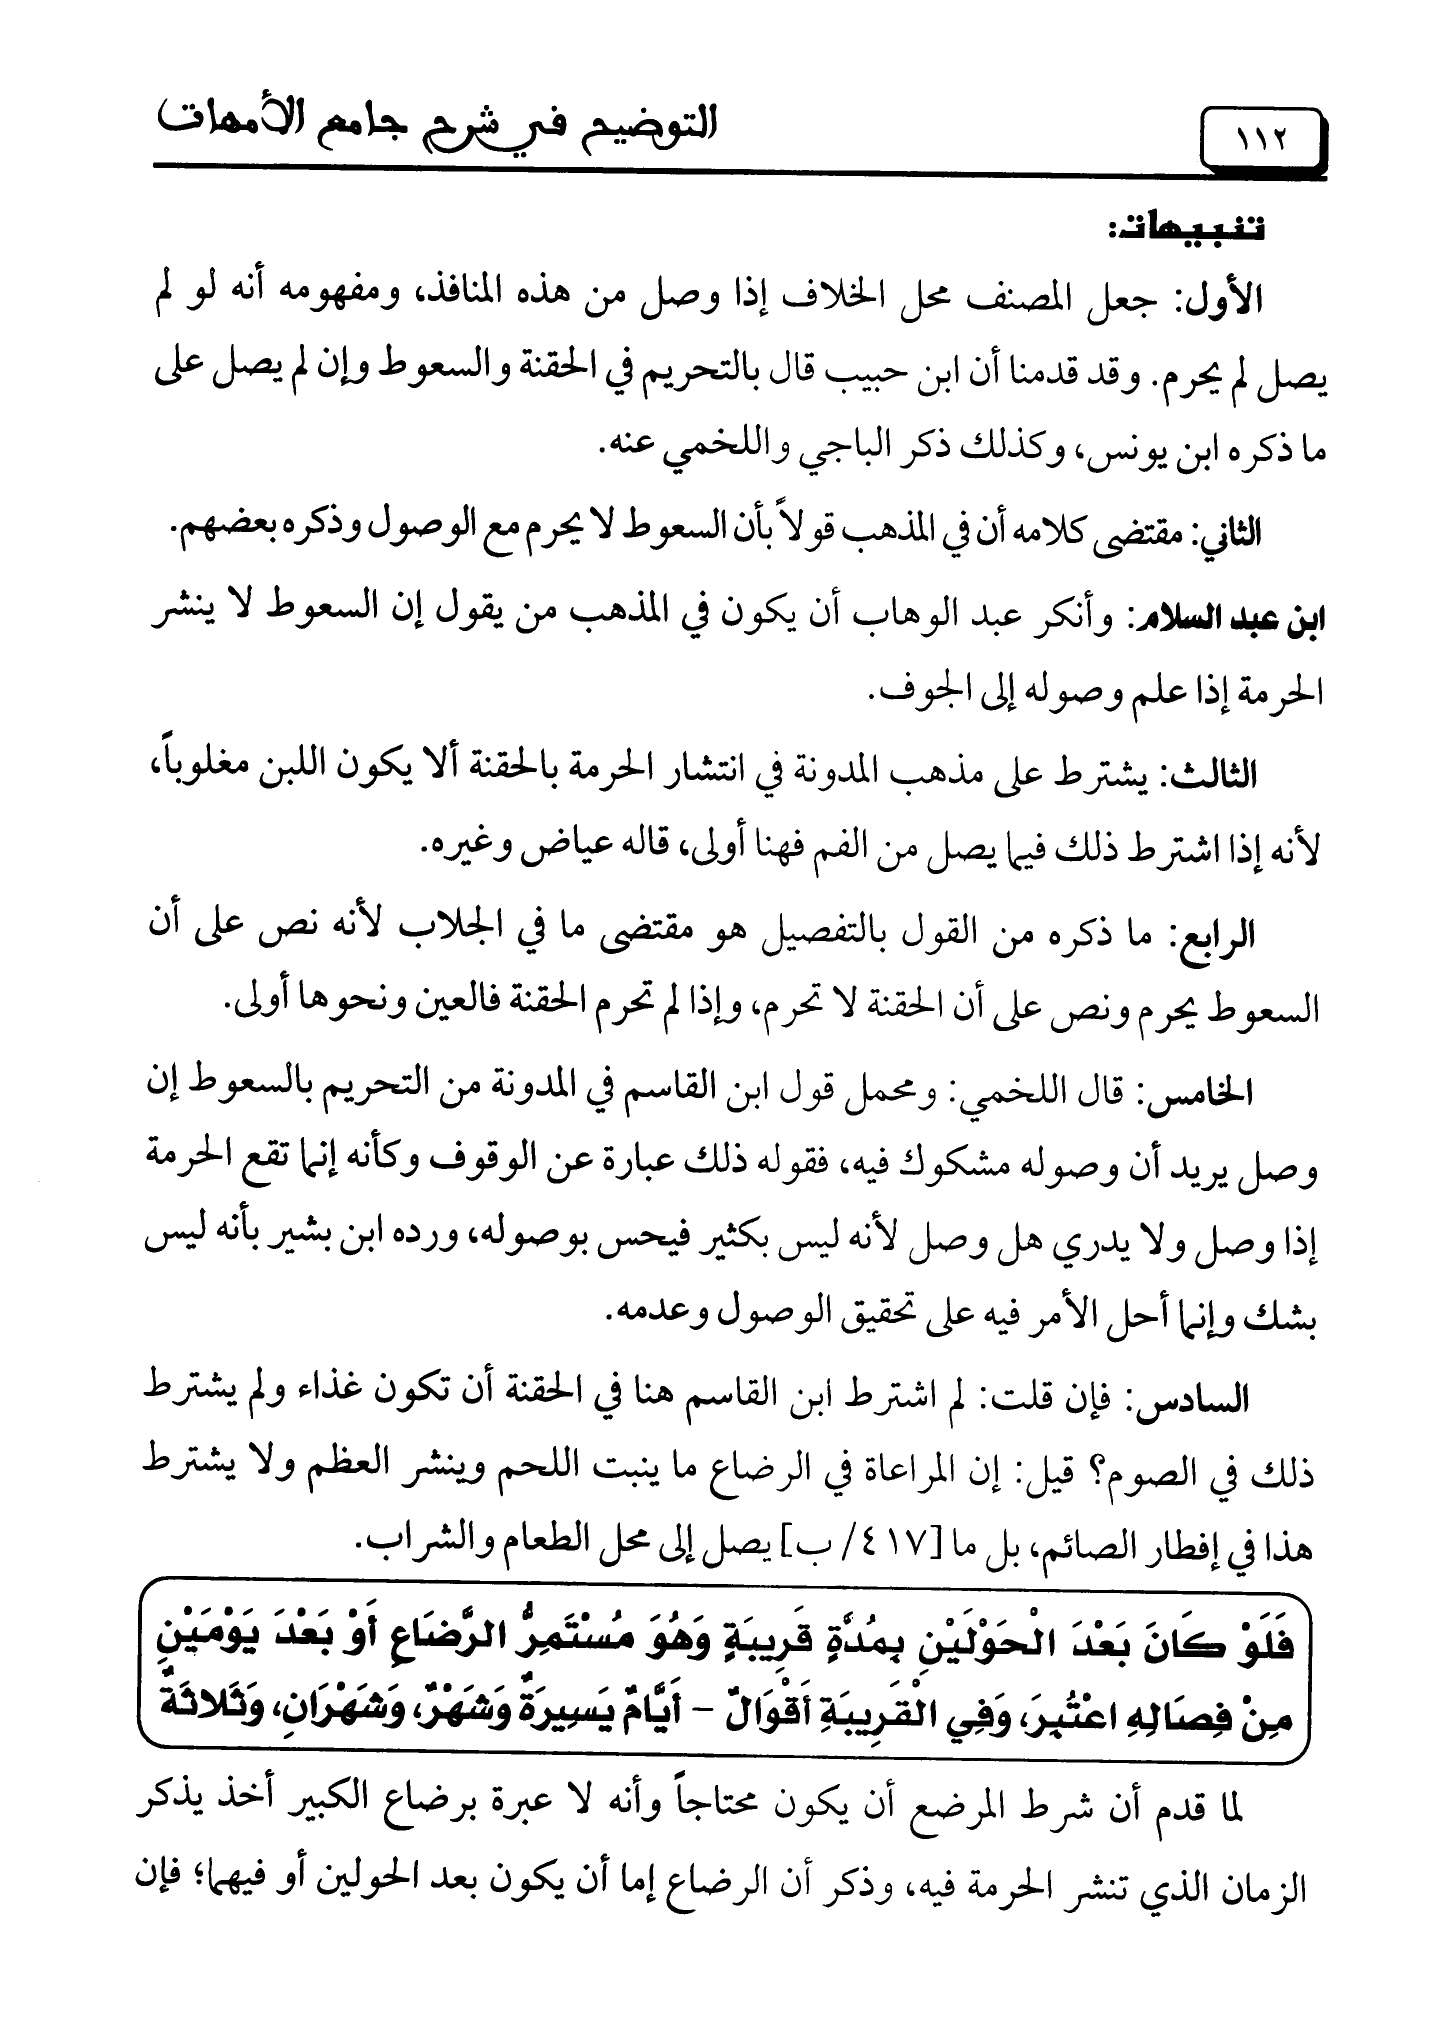 التوضيح في شرح جامع الأمهات
١١٢
تنبيهات:
الأول: جعل المصنف محل الخلاف إذا وصل من هذه المنافذ، ومفهومه أنه لو لم
يصل لم يحرم. وقد قدمنا أن ابن حبيب قال بالتحريم في الحقنة والسعوط وإن لم يصل على
ما ذكره ابن يونس، وكذلك ذكر الباجي واللخمي عنه.
الثاني: مقتضى كلامه أن في المذهب قولاً بأن السعوط لا يحرم مع الوصول وذكره بعضهم.
ابن عبد السلام: وأنكر عبد الوهاب أن يكون في المذهب من يقول إن السعوط لا ينشر
الحرمة إذا علم وصوله إلى الجوف.
الثالث: يشترط على مذهب المدونة في انتشار الحرمة بالحقنة ألا يكون اللبن مغلوباً،
لأنه إذا اشترط ذلك فيما يصل من الفم فهنا أولى، قاله عياض وغيره.
الرابع: ما ذكره من القول بالتفصيل هو مقتضى ما في الجلاب لأنه نص على أن
السعوط يحرم ونص على أن الحقنة لا تحرم، وإذا لم تحرم الحقنة فالعين ونحوها أولى.
الخامس: قال اللخمي: ومحمل قول ابن القاسم في المدونة من التحريم بالسعوط إن
وصل يريد أن وصوله مشكوك فيه، فقوله ذلك عبارة عن الوقوف وكأنه إنما تقع الحرمة
إذا وصل ولا يدري هل وصل لأنه ليس بكثير فيحس بوصوله، ورده ابن بشير بأنه ليس
بشك وإنما أحل الأمر فيه على تحقيق الوصول وعدمه.
السادس: فإن قلت: لم اشترط ابن القاسم هنا في الحقنة أن تكون غذاء ولم يشترط
ذلك في الصوم؟ قيل: إن المراعاة في الرضاع ما ينبت اللحم وينشر العظم ولا يشترط
هذا في إفطار الصائم، بل ما [٤١٧/ ب] يصل إلى محل الطعام والشراب.
فَلَوْ كَانَ بَعْدَ الْحَوْلَيْنِ بِمُدَّةٍ قَرِيبَةٍ وَهُوَ مُسْتَمِرُّ الرَّضَاعِ أَوْ بَعْدَ يَوْمَيْنِ
مِنْ فِصَالِهِ اعْتُبِرَ، وَفِي الْقَرِيبَةِ أَقْوَالٌ – أَيَّامٌ يَسِيرَةٌ وَشَهْرٌ، وَشَهْرَانِ، وَثَلاثَةٌ
لما قدم أن شرط المرضع أن يكون محتاجاً وأنه لا عبرة برضاع الكبير أخذ يذكر
الزمان الذي تنشر الحرمة فيه، وذكر أن الرضاع إما أن يكون بعد الحولين أو فيهما؛ فإن